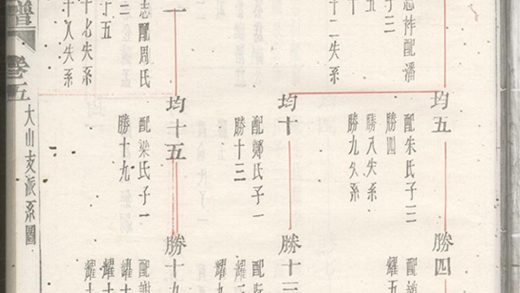 志祚配潘
子三
十二失系
志配周氏
十五
十七失系
十八失系
均五
配朱氏子三
勝四
勝八失系
勝九失系
均十
配鄭氏子一
勝十三
均十五
配梁氏子一
勝十九
勝四
耀五
勝十三
勝十九
譜
卷五
大山支派系圖